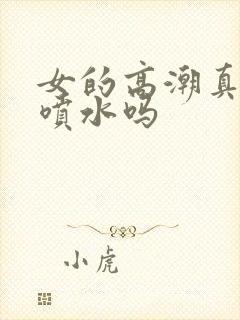 女的高潮真
喷水吗
小虎